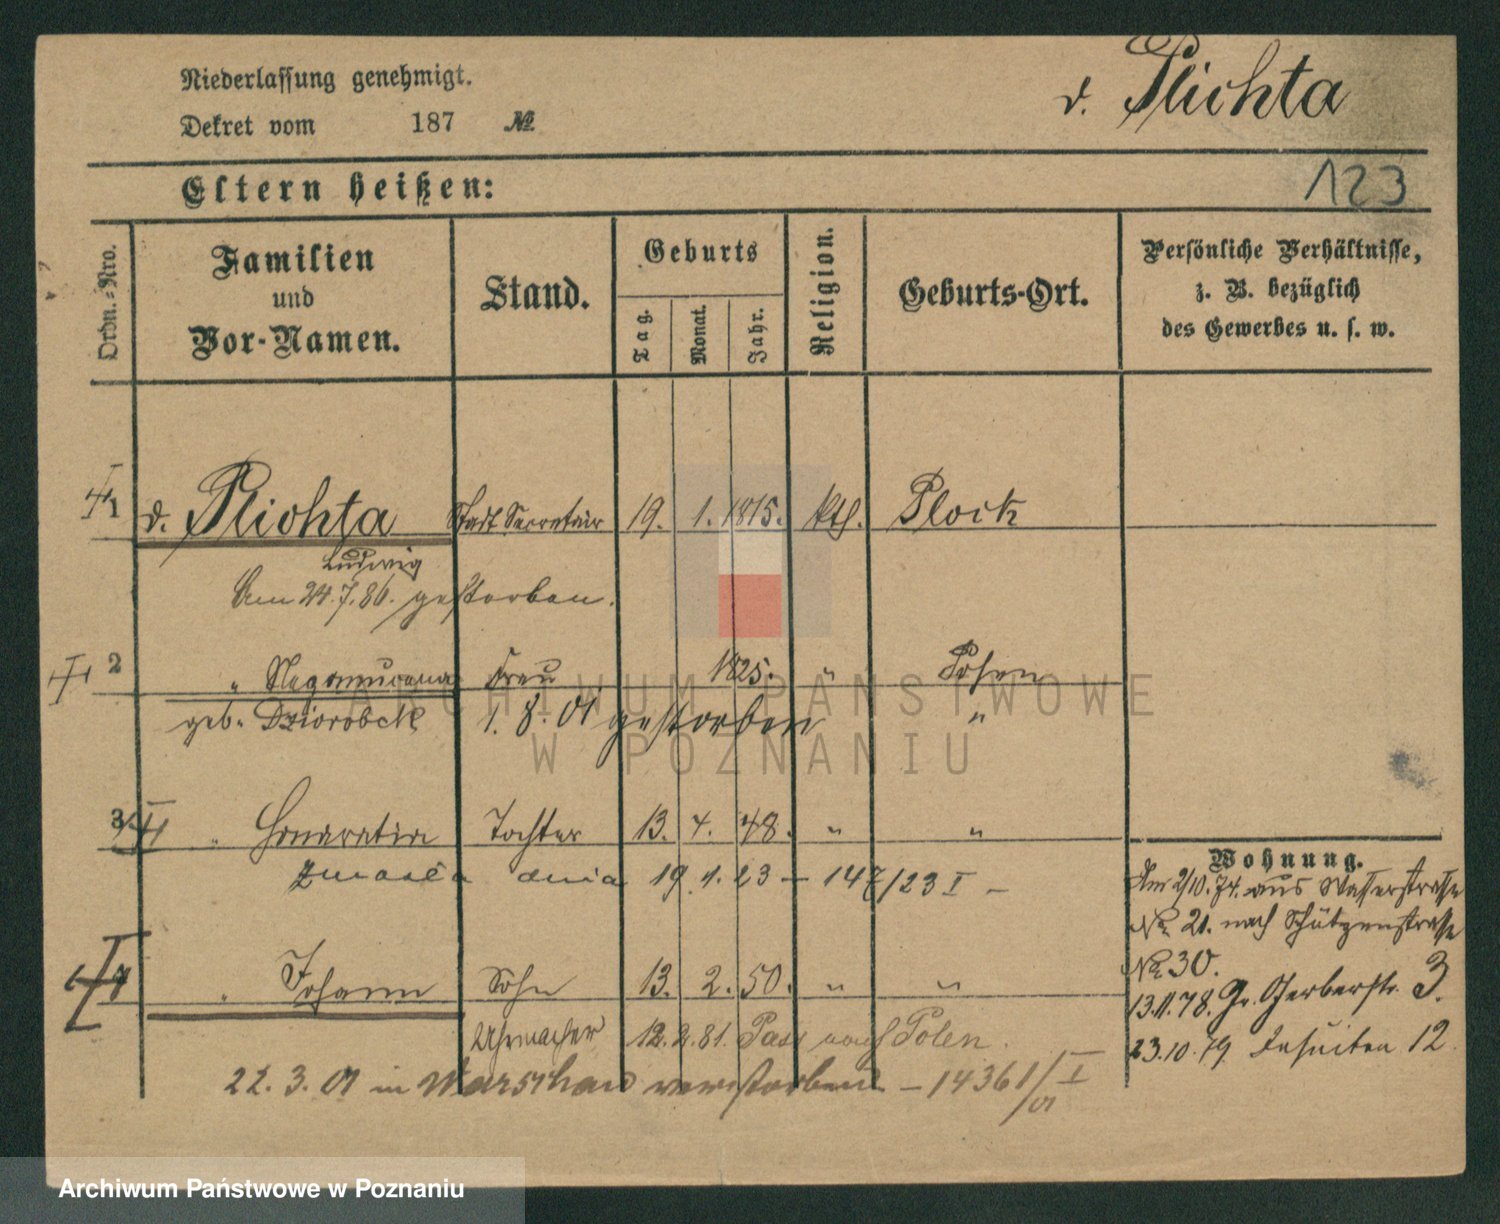 Niederlassung genehmigt.
Dekret vom 187 №
v. Plichta
Eltern heißen:
123
Ordn.=Nro.
Familien
und
Vor-Namen.
Stand.
Geburts
Tag.
Monat.
Jahr.
Religion.
Geburts-Ort.
Persönliche Verhältnisse,
z. B. bezüglich
des Gewerbes u. s. w.
1 v. Plichta Stadt Secretair 19. 1. 1815. kth. Plock
Ludwig
Am 24.7.86. gestorben.
2 " Frau 1825. " Posen
geb. 1. 8. 01 gestorben "
3 " Honoratia Tochter 13. 4. 48. " "
zmarła dnia 19. 1. 23 — 147/23 I —
4 " Johann Sohn 13. 2. 50. " "
Uhrmacher 12. 2. 81. Pass nach Polen.
22. 3. 01 in Warschau verstorben — 14361/01 I
Wohnung.
Am 2/10. 74. aus Wasserstrasse
No. 21. nach Schützenstrasse
No. 30.
13.11.78. Gr. Gerberstr. 3.
23.10.79 Jesuiten 12
ARCHIWUM PAŃSTWOWE
W POZNANIU
Archiwum Państwowe w Poznaniu